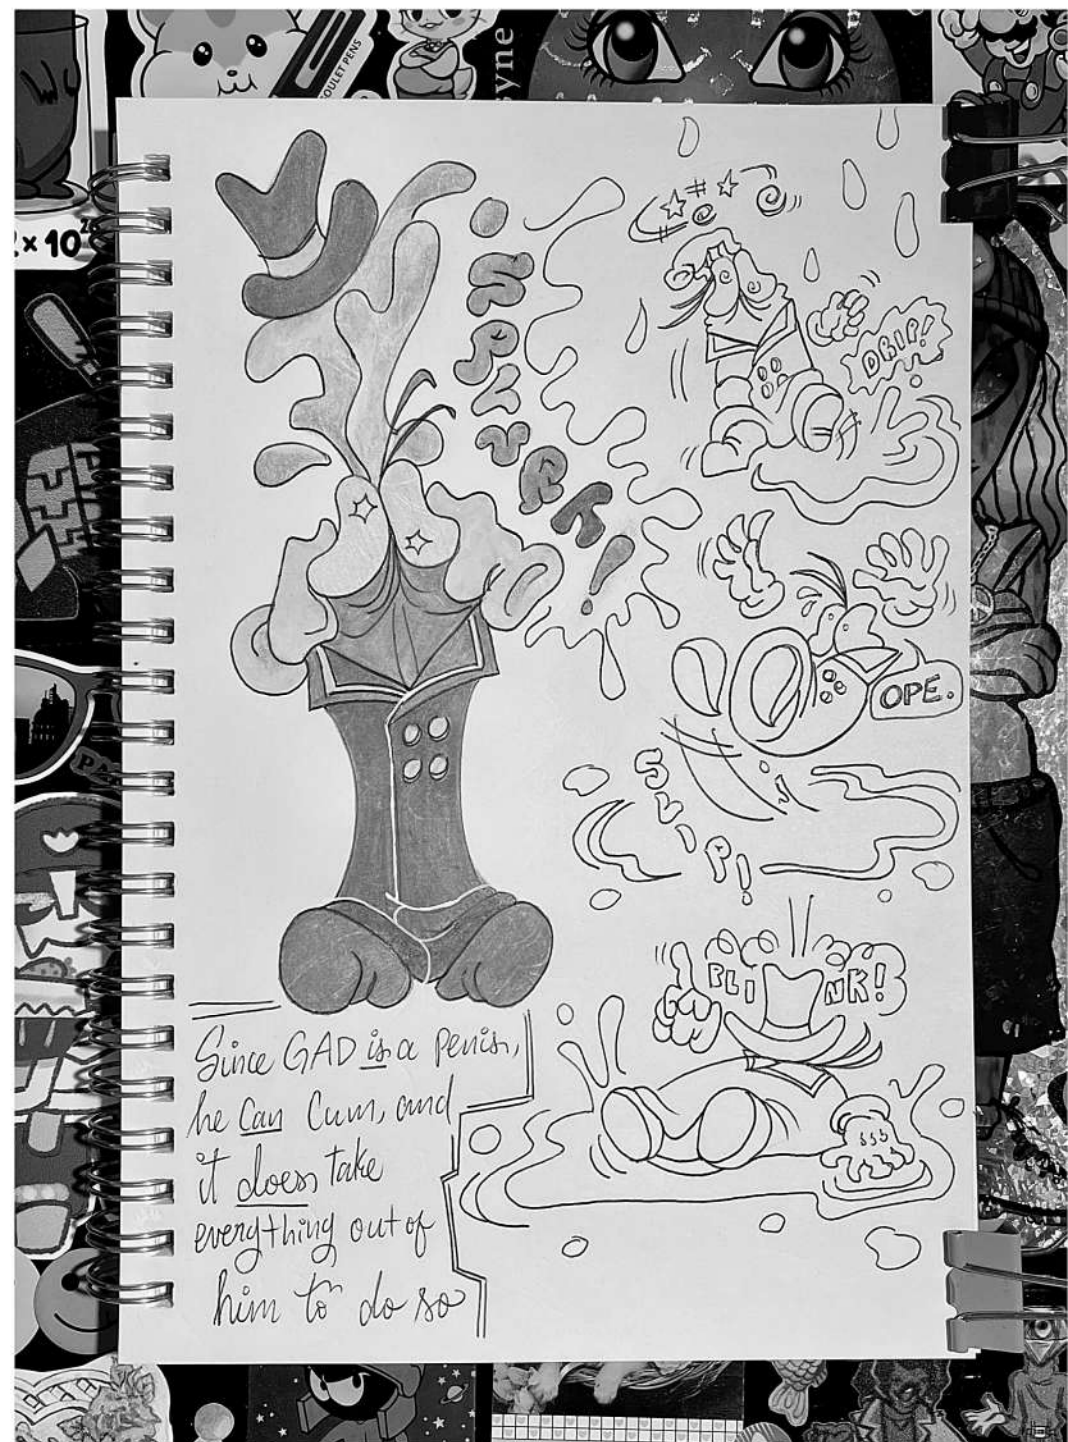 OULET PENS
syne
× 10
DRIP!
OPE.
SLIP!
PLINK!
Since GAD is a Penis,
he can Cum, and
it does take
everything out of
him to do so